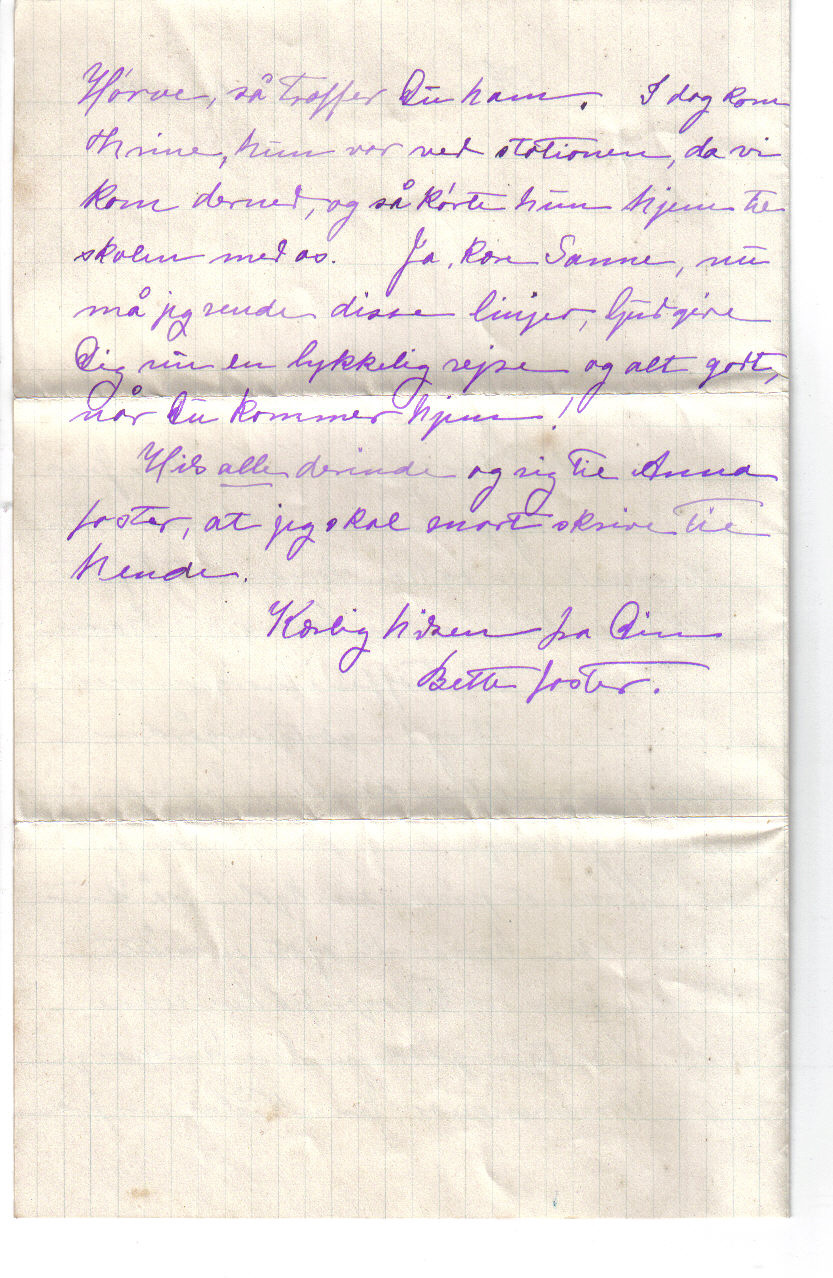 Hørve, så træffer Du ham. I dag kom
Thrine, hun var ved stationen, da vi
kom derned, og så kørte hun hjem til
skolen med os. Ja, kære Sanne, nu
må jeg sende disse linjer, Gud give
Dig nu en lykkelig rejse og alt godt,
når Du kommer hjem!
Hils alle derinde og sig til Anna
faster, at jeg skal snart skrive til
hende.
Kærlig hilsen fra Din
Bette faster.